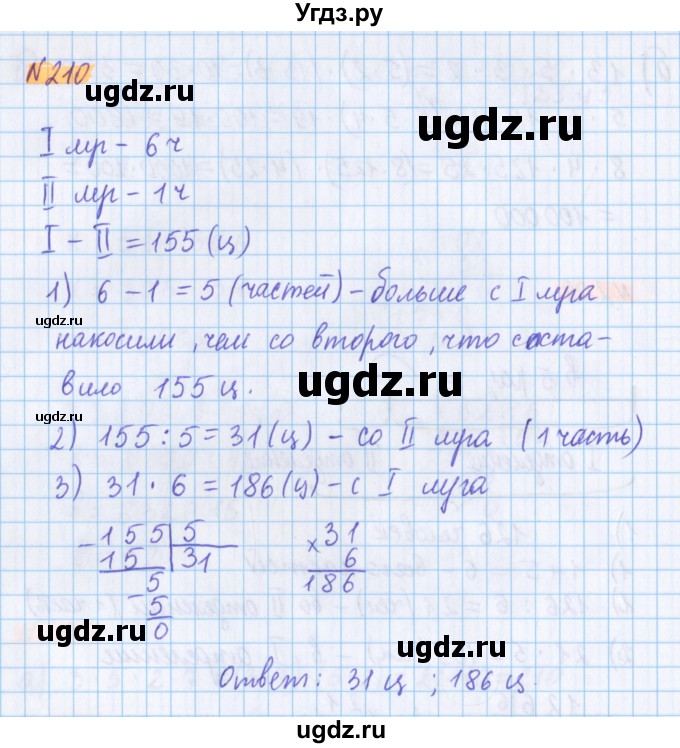 Угдз.ру
№210
ugdz.ru
ugdz.ru
I луг - 6 ч
II луг - 1 ч
I - II = 155 (ц)
1) 6 - 1 = 5 (частей) - больше с I луга
ugdz.ru
накосили, чем со второго, что соста-
вило 155 ц.
ugdz.ru
ugdz.ru
2) 155 : 5 = 31 (ц) - со II луга (1 часть)
3) 31 · 6 = 186 (ц) - с I луга
- 155 | 5 × 31
15 | 31 6
5 186
- 5
0
ugdz.ru
ugdz.ru
Ответ: 31 ц ; 186 ц.
ugdz.ru
ugdz.ru